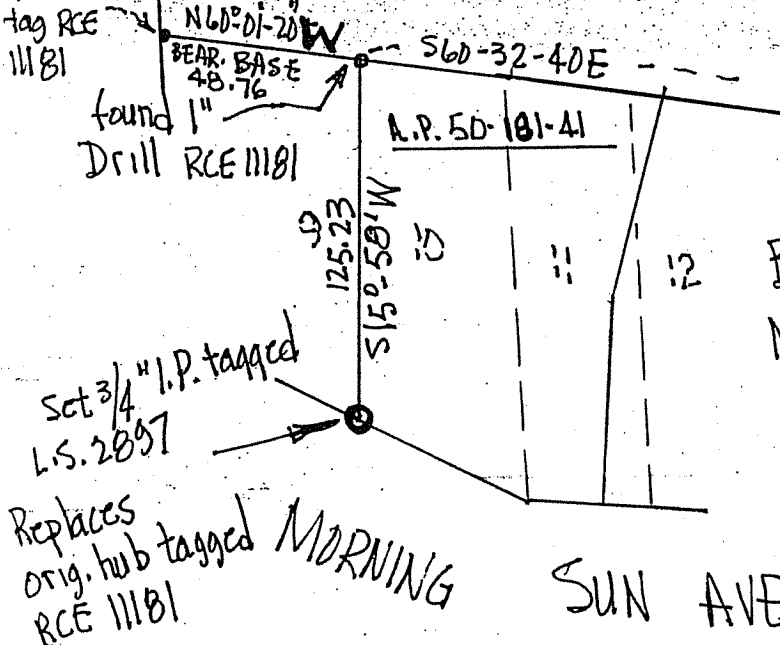 tag RCE
11181
N60°-01'-20"W
BEAR. BASE
48.76
S60-32-40E
found 1"
Drill RCE 11181
A.P. 50-181-41
125.23
S15°-58'W
10
11
12
Set 3/4" I.P. tagged
L.S. 2897
Replaces
orig. hub tagged
RCE 11181
MORNING
SUN AVE